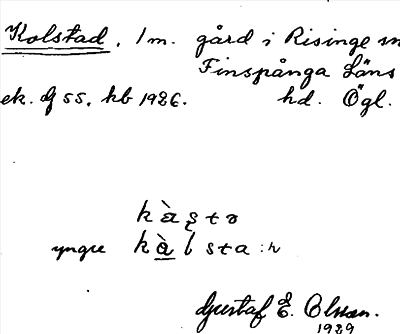 Kolstad. 1 m. gård i Risinge sn
Finspånga Läns
ek. G 55. kb 1926. hd. Ögl.
kàsta
yngre kàlsta:n
Gustaf E. Olsson.
1929